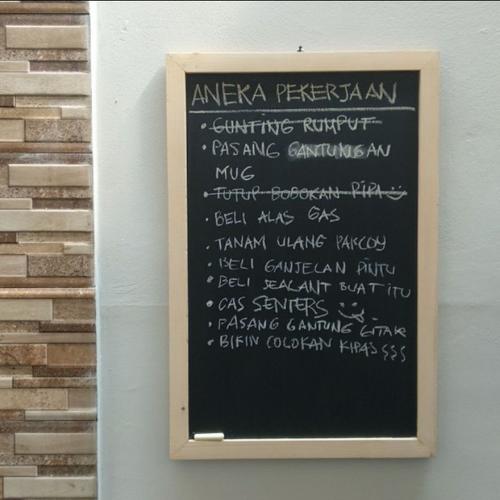 ANEKA PEKERJAAN
• GUNTING RUMPUT
• PASANG GANTUNGAN
MUG
• TUTUP BOBOKAN PIPA
• BELI ALAS GAS
• TANAM ULANG PAKCOY
• BELI GANJELAN PINTU
• BELI SEALANT BUAT ITU
• CAS SENTERS
• PASANG GANTUNG GITAR
• BIKIN COLOKAN KIPAS $$$